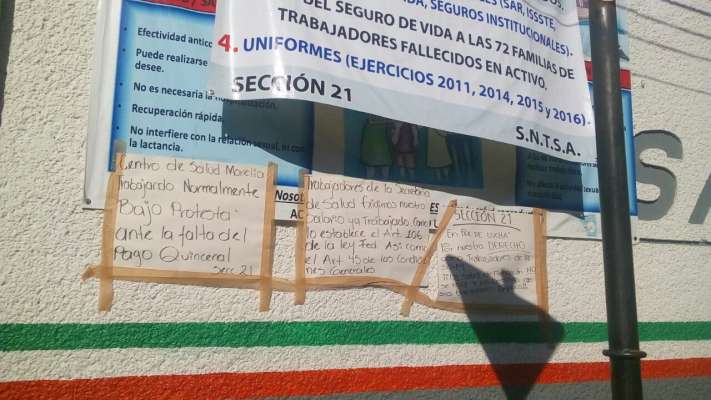 (SAR, ISSSTE,
SEGUROS INSTITUCIONALES).
DEL SEGURO DE VIDA A LAS 72 FAMILIAS DE
TRABAJADORES FALLECIDOS EN ACTIVO.
4. UNIFORMES (EJERCICIOS 2011, 2014, 2015 y 2016).
SECCIÓN 21
S.N.T.S.A.
Efectividad
Puede realizarse
desee.
No es necesaria la
Recuperación rápida.
No interfiere con la
la lactancia.
SA
Centro de Salud Morelia
Trabajando Normalmente
Bajo Protesta
ante la falta del
Pago Quincenal
Secc 21
Trabajadores de la Secretaria
de Salud Exigimos nuestro
Salario ya Trabajado Como
lo establece el Art 106
de la ley Fed. Asi como
el Art 45 de las Condicio
nes Generales
SECCIÓN 21
EN PIE DE LUCHA
Por nuestro DERECHO
como Trabajadores de la